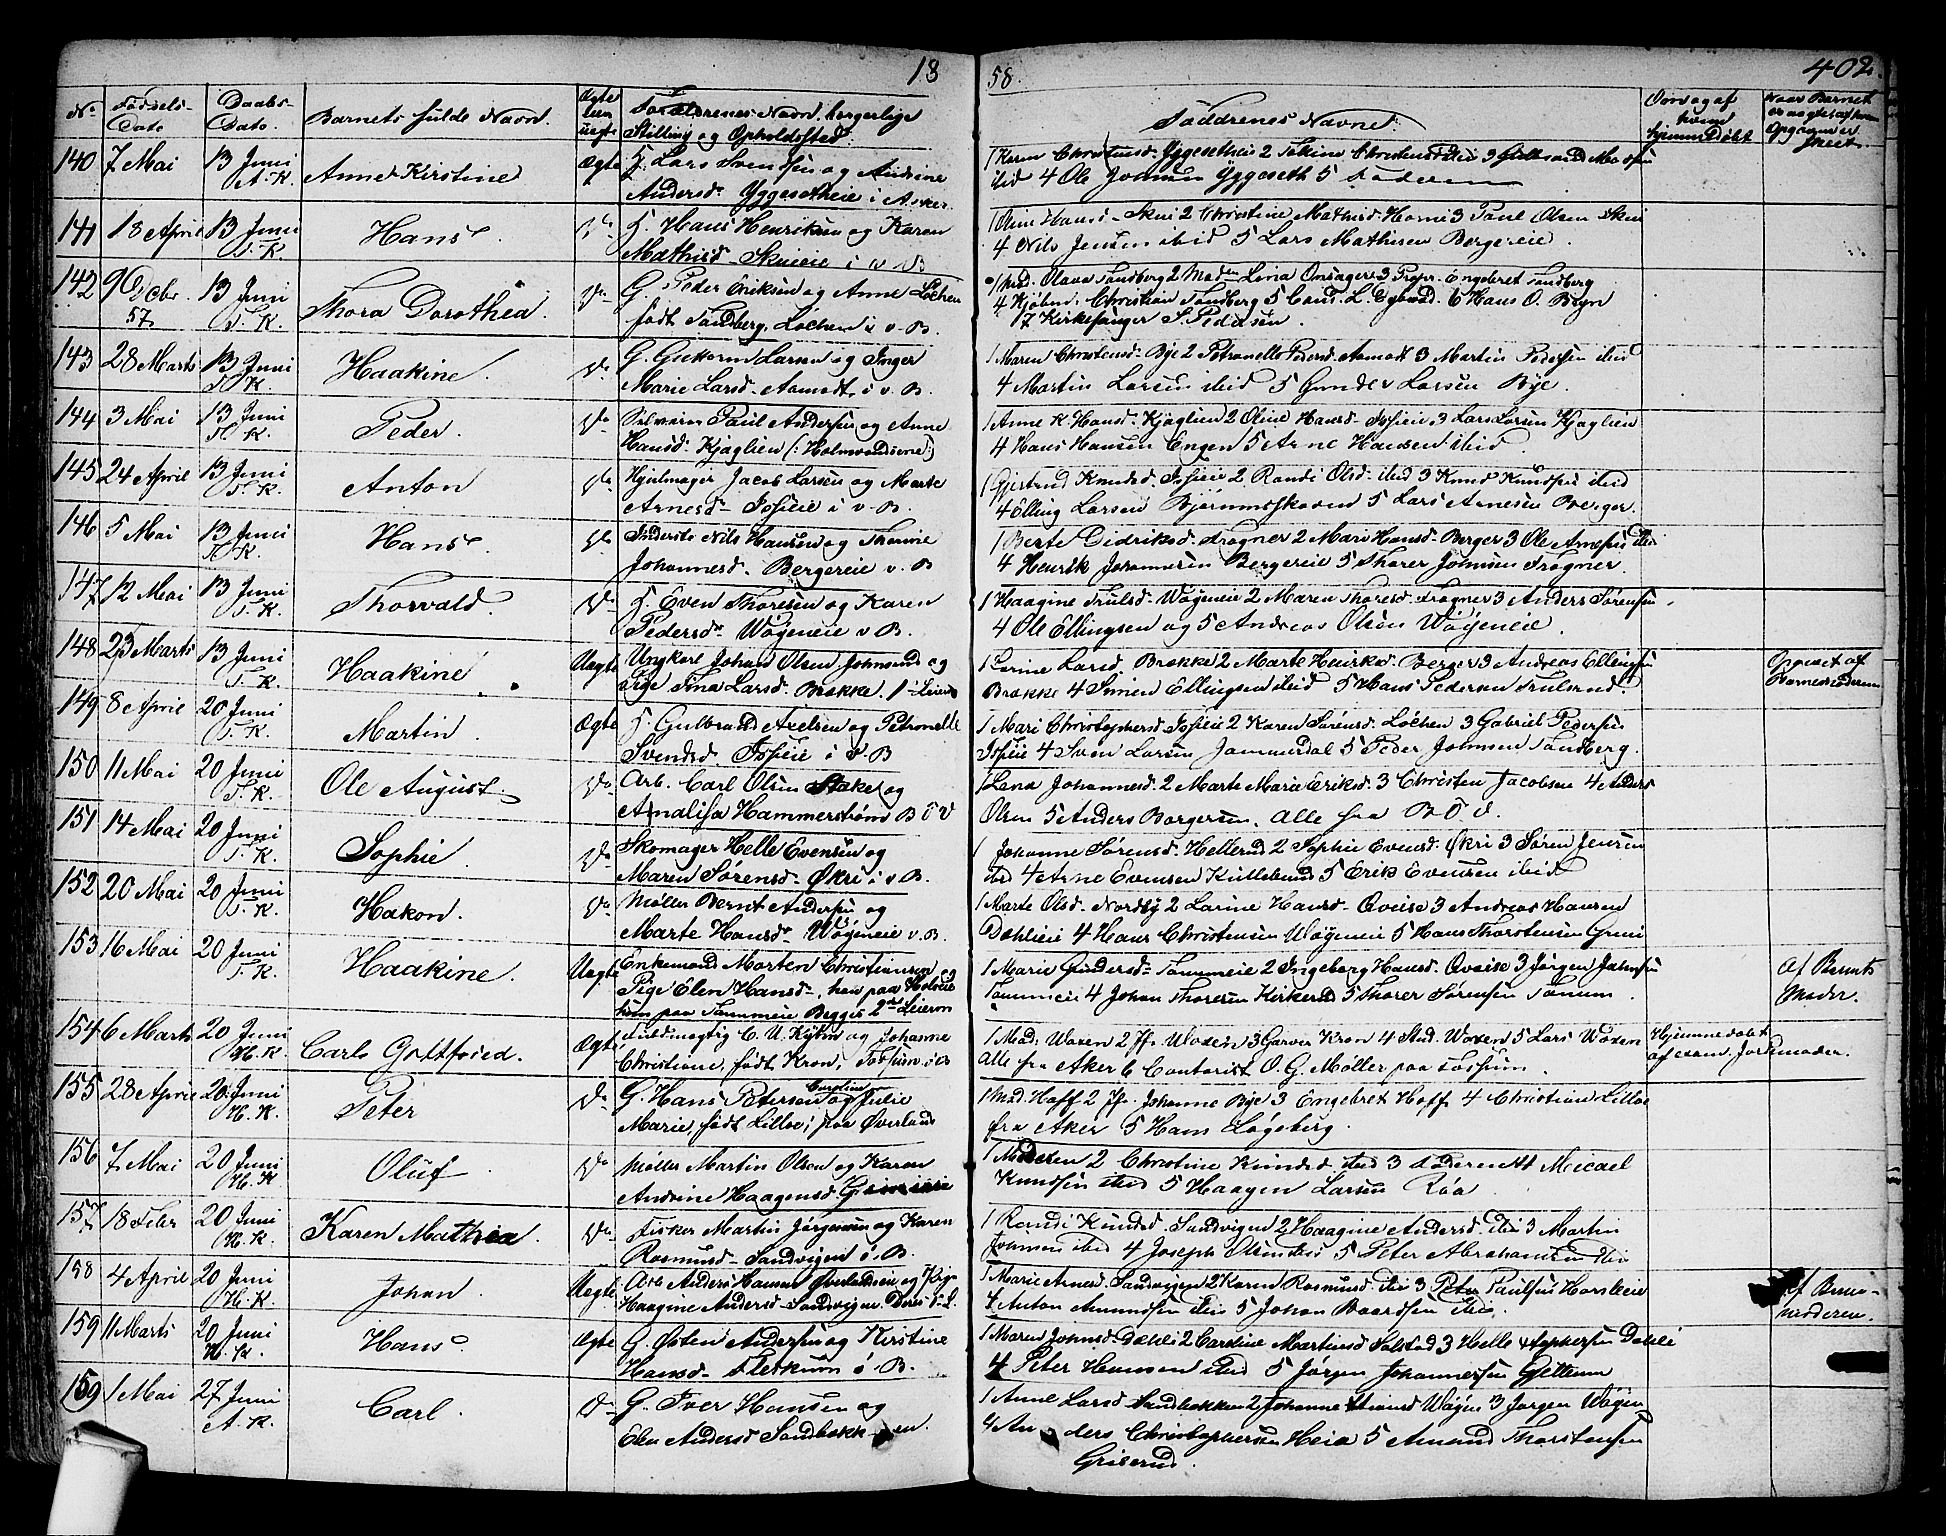 18
58.
402.
No. Fødsels-Dato Daabs-Dato. Barnets fulde Navn. Ægte ell. uægte Forældrenes Navn, borgerlige Stilling og Opholdssted. Faddrenes Navne.
140 7 Mai 13 Juni A.K. Anne Kirstine Ægte G. Lars Svendsen og Andrine
Andersd. Yggesetheie i Asker.
1 Karen Christensd. Yggesetheie 2
ibid 4 Ole Johnsen Yggeseth 5 Faderen
141 18 April 13 Juni T.K. Hans Do G. Hans Henriksen og Karen
Mathisd. Skueie i v. B
1 Oline Hansd. Skui 2 Christine Mathisd. Horni 3 Paul Olsen Skui
4 Nils Jensen ibid 5 Lars Mathisen Bergereie.
142 9 Dcbr. 57 13 Juni T.K. Thora Dorothea. Do G. Peder Eriksen og Anne Løchen
født Sandberg, Løchen i v. B.
1 Md. Olava Sandberg 2 Madm Lina Onsager 3 Propr. Engebret Sandberg
4 Kjøbm. Christian Sandberg 5 Cand. L. 6 Hans O. Bryn
7 Kirkesanger S. Pedersen.
143 28 Marts 13 Juni T.K. Haakine. Do G. Guttorm Larsen og Inger
Marie Larsd. Aamodt, i v. B.
1 Maren Christensd. Bye 2 Petronelle Pedersd. Aamodt 3 Martin Pedersen ibid
4 Martin Larsen ibid 5 Gunder Larsen Bye.
144 3 Mai 13 Juni T.K. Peder. Do Selveier Paul Andersen og Anne
Hansd. Kjaglien (: Holmsværdene:)
1 Anne K. Hansd. Kjaglien 2 Oline Hansd. Jøsseie 3 Lars Larsen Kjaglien
4 Hans Hansen Engen 5 Arne Hansen ibid.
145 24 April 13 Juni T.K. Anton Do Hjulmager Jacob Larsen og Marte
Arnesd. Jøsseie i v. B.
1 Gjertrud Knudsd. Jøsseie 2 Randi Olsd. ibid 3 Knud Knudsen ibid
4 Elling Larsen Bjørnumskoven 5 Lars Arnesen Berger.
146 5 Mai 13 Juni T.K. Hans. Do Inderste Nils Hansen og Thorine
Johannesd. Bergereie v. B
1 Berte Didriksd. Frogner 2 Mari Hansd. Berger 3 Ole Arnesen ibid
4 Henrik Johannesen Bergereie 5 Thorer Johnsen Frogner.
147 12 Mai 13 Juni T.K. Thorvald. Do G. Even Thoresen og Karen
Pedersd. Wøyeneie v. B.
1 Haagine Trulsd. Wøyeneie 2 Maren Thoresd. Frogner 3 Anders Sørensen
4 Ole Ellingsen og 5 Andreas Olsen Wøyeneie.
148 23 Marts 13 Juni T.K. Haakine Uægte Ungkarl Johan Olsen Johnsrud og
Pige Tina Larsd. Brække. 1ste Leierm.
1 Larine Larsd. Brække 2 Marte Henriksd. Berger 3 Andreas Ellingsen
Brække 4 Simen Ellingsen ibid 5 Hans Pedersen Trulsrud.
Opgivet af
Barnefaderen
149 8 April 20 Juni T.K. Martin. Ægte G. Gulbrand Axelsen og Petronelle
Svendsd. Jøsseie i v. B
1 Mari Christophersd. Jøsseie 2 Karen Sørensd. Løchen 3 Gabriel Pedersen
Jøsseie 4 Sven Larsen Jammerdal 5 Peder Johnsen Sandberg.
150 11 Mai 20 Juni T.K. Ole August. Do Arb. Carl Olsen Stake og
Annalisa Hammerstrøm B Ø V
1 Lena Johannesd. 2 Marte Marie Eriksd. 3 Christen Jacobsen 4 Anders
Olsen 5 Anders Borgersen. Alle fra B Ø V.
151 14 Mai 20 Juni T.K. Sophie. Do Skomager Helle Evensen og
Maren Sørensd. Økri i v. B.
1 Johanne Sørensd. Hellerud 2 Sophie Evensd. Økri 3 Søren Jensen
ibid 4 Arne Evensen Kullebund 5 Erik Evensen ibid.
152 20 Mai 20 Juni T.K. Hakon. Do Møller Bernt Andersen og
Marte Hansd. Wøyeneie v. B.
1 Marte Olsd. Nordby 2 Larine Hansd. Qveise 3 Andreas Hansen
Dæhlieie 4 Hans Christensen Wøyeneie 5 Hans Thorstensen Grini
153 16 Mai 20 Juni T.K. Haakine. Uægte Enkemand Morten Christiansen og
Pige Elen Hansd., han paa Holseie
hun paa Tammeie Begges 2det Leierm
1 Marie Gundersd. Tammeie 2 Ingeborg Hansd. Qveise 3 Jørgen Johnsen
Tammeie 4 Johan Thoresen Kirkerud 5 Thorer Sørensen Tanum.
Af Barnets
Moder.
154 6 Marts 20 Juni H.K. Carl Gottfried. Ægte Fuldmægtig C. U. Kyhm og Johanne
Christiane, født Kron, Fossum i v. B
1 Mad. Woxen 2 Jfr. Woxen 3 Garver Kron 4 Stud. Woxen 5 Lars Woxen
alle fra Aker 6 Contorist O. G. Møller paa Fossum.
Hjemmedøbt
af exam. Jordemoder.
155 28 April 20 Juni H.K. Peter Do G. Hans Petersen og Caroline Julie
Marie, født Lilloe, paa Øverland
1 Md. Hoff 2 Jfr. Johanne Bye 3 Engebret Hoff 4 Christian Lilloe
fra Aker 5 Hans Løgeberg.
156 7 Mai 20 Juni H.K. Oluf Do Møller Martin Olsen og Karen
Andrine Haagensd. Grinieie
1 Moderen 2 Christine Knudsd. ibid 3 Faderen 4 Micael
Knudsen ibid 5 Haagen Larsen Røa.
157 18 Febr 20 Juni H.K. Karen Mathea. Do Fisker Martin Jørgensen og Karen
Rasmusd. Sandvigen i v. B.
1 Randi Knudsd. Sandvigen 2 Haagine Andersd. ibid 3 Martin
Johnsen ibid 4 Joseph Olsen ibid 5 Peter Abrahamsen ibid
158 4 April 20 Juni H.K. Johan. Uægte Arb. Anders Hansen Øverlandseie og Pige
Haagine Andersd. Sandvigen. Deres L.
1 Marie Arnesd. Sandvigen 2 Karen Rasmusd. ibid 3 Peter Paulsen Horsleeie
4 Anton Amundsen ibid 5 Johan Baardsen ibid.
Af Barnemoderen.
159 11 Marts 20 Juni H.K. Hans. Ægte G. Østen Andersen og Kirstine
Hansd. Fleskum i v. B.
1 Maren Johnsd. Dæhli 2 Caroline Martinsd. Solstad 3 Helle Dæhli
4 Peter Hansen ibid 5 Jørgen Johannessen Gjettum
159 1 Mai 27 Juni A.K. Carl. Do G. Iver Hansen og
Elen Andersd Sandbakken.
1 Anne Larsd. Sandbakken 2 Johanne Wøyen 3 Jørgen Wøyen
4 Anders Christophersen Heia 5 Amund Thorstensen
Griserud.